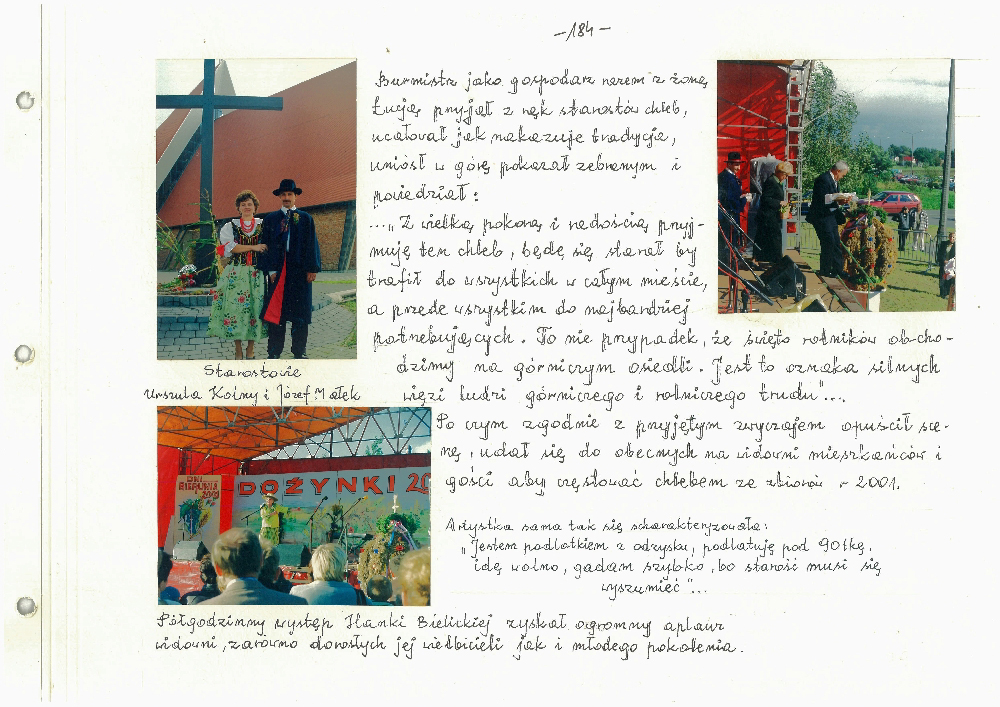 -184-
Burmistrz jako gospodarz razem z żoną
Łucją przyjął z rąk starostów chleb,
ucałował jak nakazuje tradycja,
uniósł w górę pokazał zebranym i
powiedział:
..."Z wielką pokorą i radością przyj-
muję ten chleb, będę się starał by
trafił do wszystkich w całym mieście,
a przede wszystkim do najbardziej
potrzebujących. To nie przypadek, że święto rolników obcho-
dzimy na górniczym osiedli. Jest to oznaka silnych
więzi ludzi górniczego i rolniczego trudu"...
Starostowie
Urszula Kolny i Józef Małek
Po czym zgodnie z przyjętym zwyczajem opuścił sce-
nę, udał się do obecnych na widowni mieszkańców i
gości aby częstować chlebem ze zbiorów r 2001.
DNI
BIERUNIA
2001
DOŻYNKI 20
Artystka sama tak się scharakteryzowała:
"Jestem podlotkiem z odzysku, podlatuję pod 90tkę,
idę wolno, gadam szybko, bo starość musi się
wyszumieć"...
Półgodzinny występ Hanki Bielickiej zyskał ogromny aplauz
widowni, zarówno dorosłych jej wielbicieli jak i młodego pokolenia.